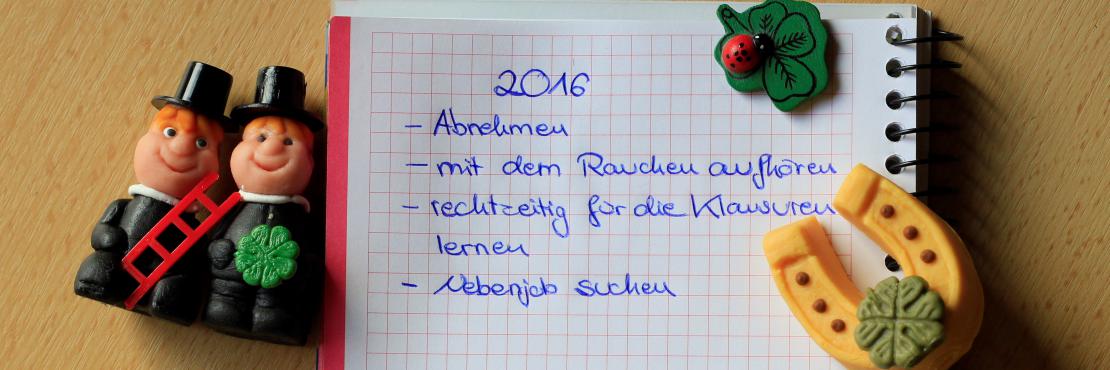 2016
- Abnehmen
- mit dem Rauchen aufhören
- rechtzeitig für die Klausuren
lernen
- Nebenjob suchen